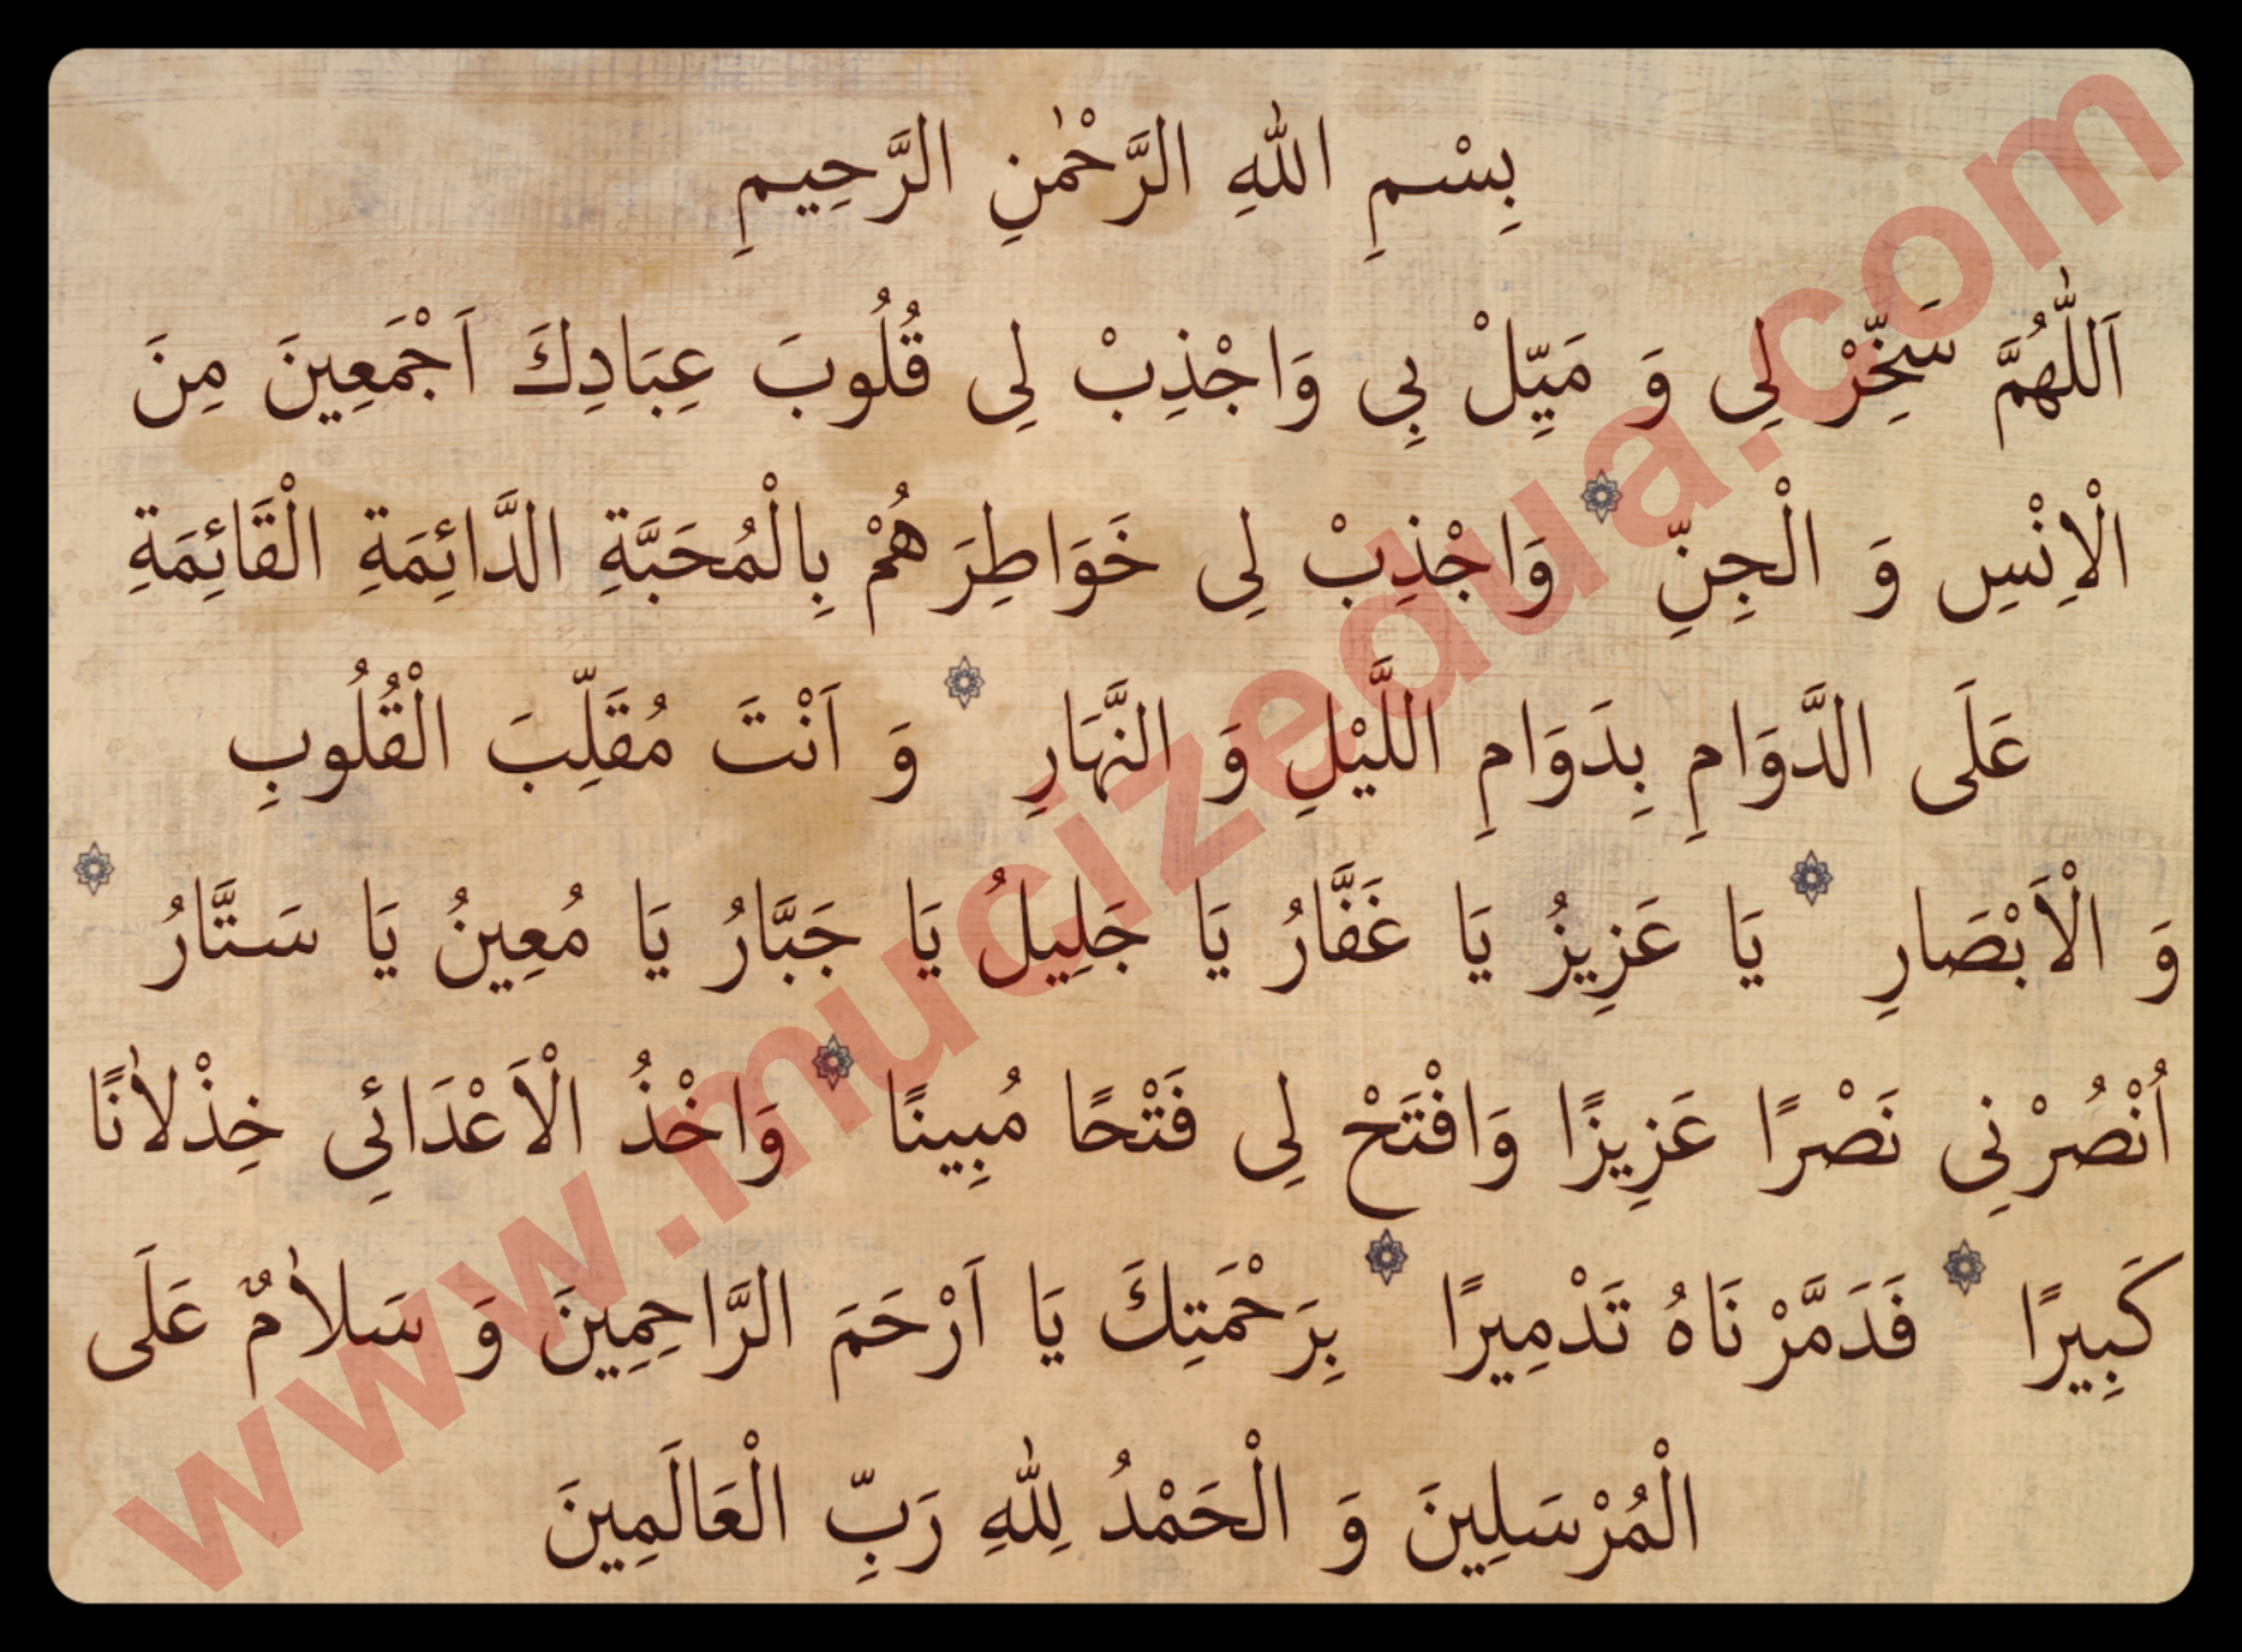 بِسْمِ اللّٰهِ الرَّحْمٰنِ الرَّحِيمِ
اَللّٰهُمَّ سَخِّرْ لِى وَ مَيِّلْ بِى وَاجْذِبْ لِى قُلُوبَ عِبَادِكَ اَجْمَعِينَ مِنَ
الْاِنْسِ وَ الْجِنِّ ۞ وَاجْذِبْ لِى خَوَاطِرَهُمْ بِالْمُحَبَّةِ الدَّائِمَةِ الْقَائِمَةِ
عَلَى الدَّوَامِ بِدَوَامِ اللَّيْلِ وَ النَّهَارِ ۞ وَ اَنْتَ مُقَلِّبَ الْقُلُوبِ
وَ الْاَبْصَارِ ۞ يَا عَزِيزُ يَا غَفَّارُ يَا جَلِيلُ يَا جَبَّارُ يَا مُعِينُ يَا سَتَّارُ ۞
اُنْصُرْنِى نَصْرًا عَزِيزًا وَافْتَحْ لِى فَتْحًا مُبِينًا ۞ وَاخْذُ الْاَعْدَائِى خِذْلاٰنًا
كَبِيرًا ۞ فَدَمَّرْنَاهُ تَدْمِيرًا ۞ بِرَحْمَتِكَ يَا اَرْحَمَ الرَّاحِمِينَ وَ سَلاٰمٌ عَلَى
الْمُرْسَلِينَ وَ الْحَمْدُ لِلّٰهِ رَبِّ الْعَالَمِينَ
www.mucizedua.com